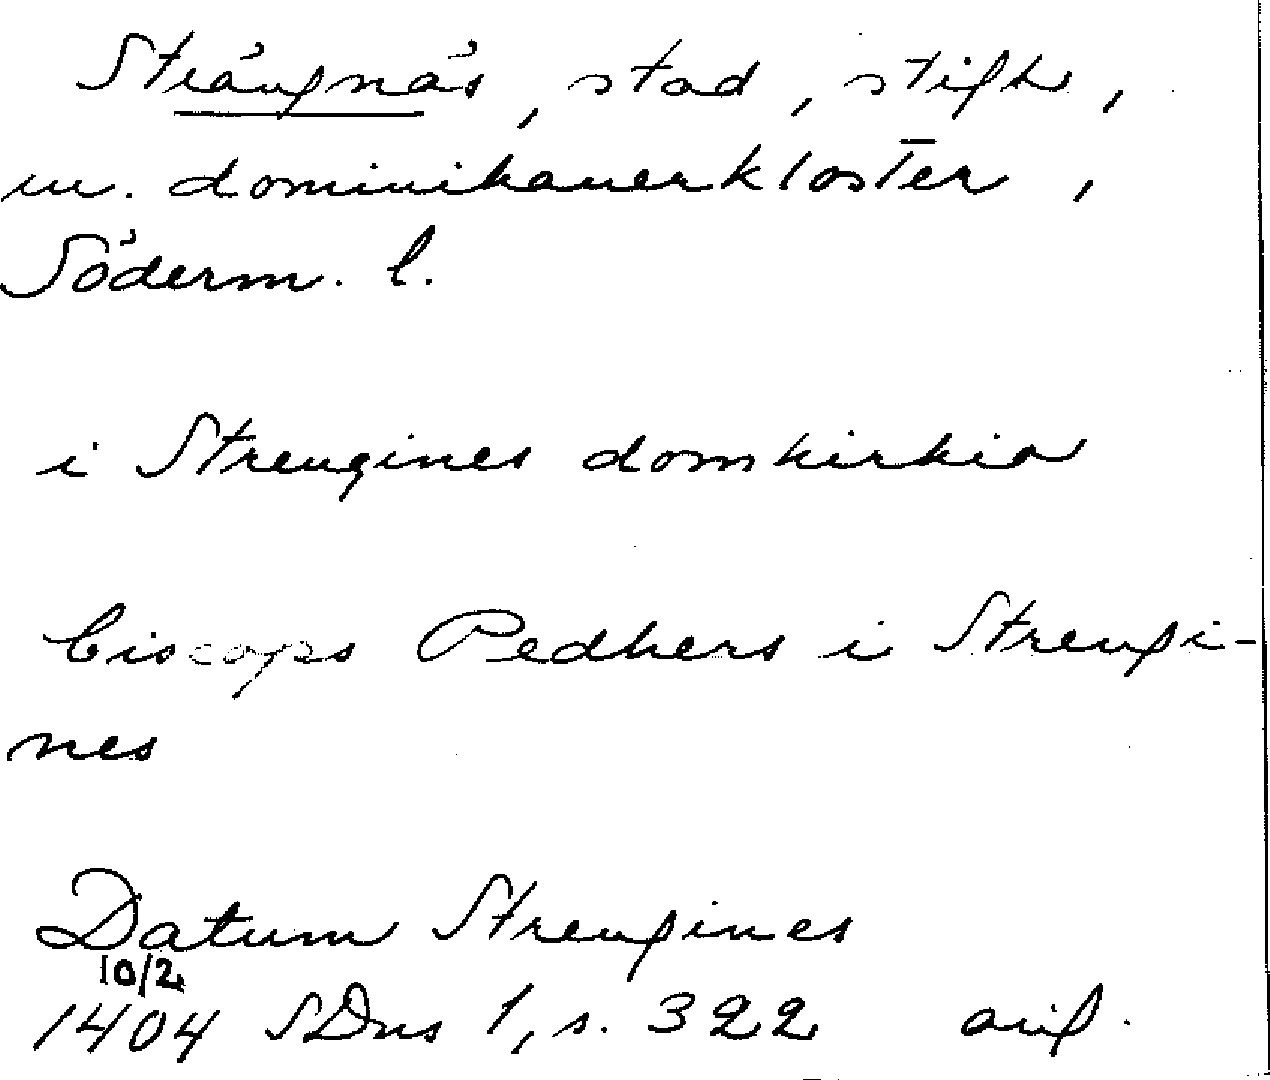 Strängnäs, stad, stift,
m. dominikanerkloster,
Söderm. l.
i Strengines domkirkio
biscops Pedhers i Strengi-
nes
Datum Strengines
10/2
1404 SDns 1, s. 322 orig.